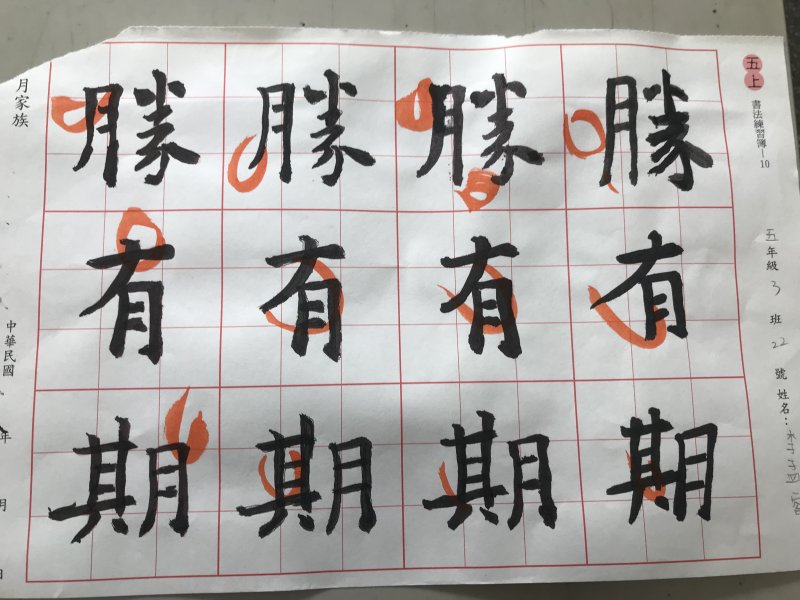 五上 書法練習簿—10
五年級 3 班 22 號 姓名：
勝有期
勝有期
勝有期
勝有期
月家族
中華民國 年 月 日